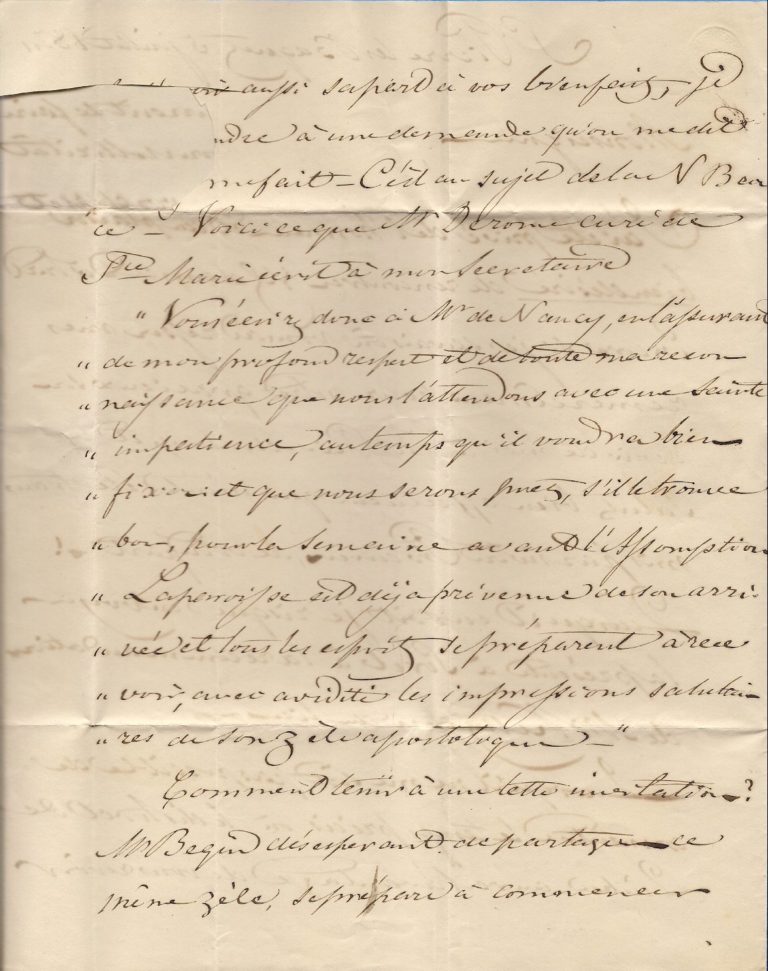 aussi sa part à vos bienfaits, je
ndre à une demande qu'on me dit
me fait - C'est au sujet de la N Beau
ce - Voici ce que Mr Derome curé de
Ste Marie écrit à mon Secretaire
" Vous écrirez donc à Mr de Nancy, en l'assurant
" de mon profond respect et de toute ma recon
" naissance que nous l'attendons avec une sainte
" impatience, au temps qu'il voudra bien
" fixer et que nous serons prets, s'il le trouve
" bon, pour la semaine avant l'Assomption
" La paroisse est déja prévenue de son arri-
" vée et tous les esprits se préparent à rece
" voir, avec avidité les impressions salutai-
" res de son zèle apostolique - "
Comment tenir à une telle invitation - ?
Mr Begin désesperant de partager ce
même zèle, se prépare à commencer